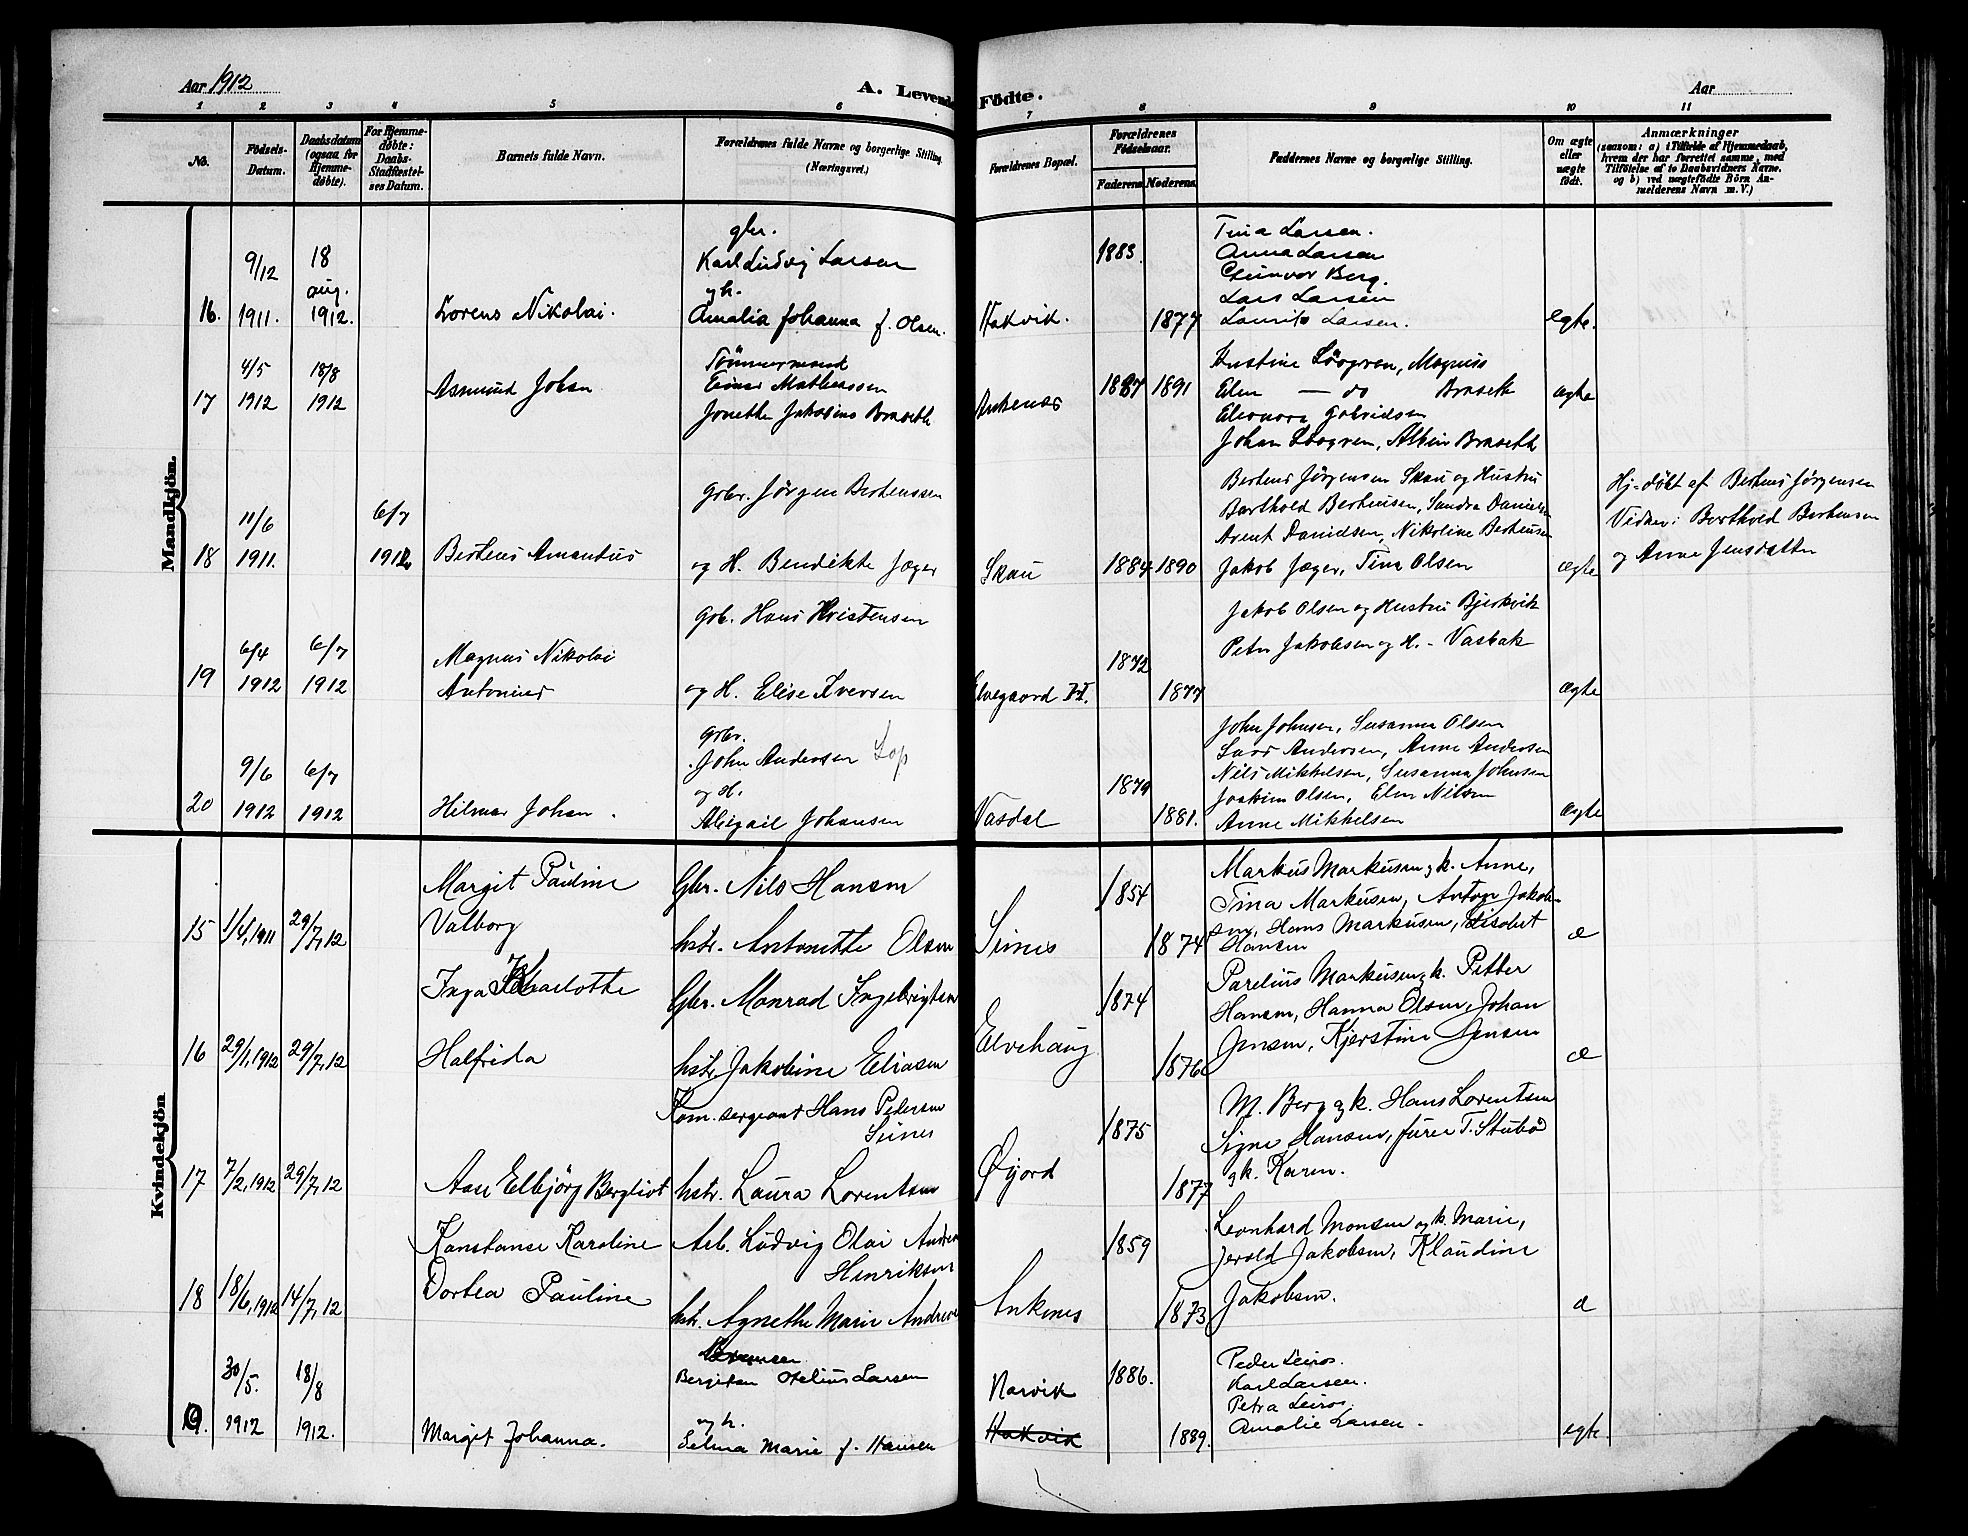 Aar 1912
A. Levende Födte.
Aar
1 2 3 4 5 6 7 8 9 10 11
No.
Födsels-
Datum.
Daabsdatum
(ogsaa for
Hjemme-
døbte).
For Hjemme-
døbte:
Daabs-
Stadfæstel-
ses Datum.
Barnets fulde Navn.
Forældrenes fulde Navne og borgerlige Stilling.
(Næringsvei.)
Forældrenes Bopæl.
Forældrenes
Födselsaar.
Faderens. Moderens.
Faddernes Navne og borgerlige Stilling.
Om ægte
eller
uægte
födt.
Anmærkninger
(saasom: a) i Tilfælde af Hjemmedaab,
hvem der har forrettet samme, med
Tilföielse af to Daabsvidners Navne,
og b) ved uægtefødte Börn An-
melderens Navn m. V.)
Mandkjön.
16.
9/12
1911.
18
aug.
1912.
Lorens Nikolai.
gbr.
Karl Ludvig Larsen
og h.
Amalia Johanna f. Olsen.
Hakvik.
1883.
1877
Tina Larsen.
Anna Larsen
Gunvor Berg.
Lars Larsen
Laurits Larsen.
egte.
17
4/5
1912
18/8
1912
Asmund Johan
Tömmermand
Einar Mathiassen
Jonette Jakobine Braseth
Ankenes
1887
1891
Kristine Lövgren, Magnus
Elen — do Braseth
Eleonora
Johan Lövgren, Albin Braseth
ægte
18
11/6
1911.
6/7
1912
Bertens Amandus
Grbr. Jørgen Bertenssen
og H. Bendikte Jæger
Skau
1884
1890
Bertens Jørgensen Skau og Hustru
Barthold Berthensen, Sandra Danielsen
Arent Danielsen, Nikoline Berthensen
Jakob Jæger, Tina Olsen
ægte
Hj-døbt af Bertens Jørgensen
Vidner: Berthold Berthensen
og Anne Jensdatter
19
6/4
1912
6/7
1912
Magnus Nikolai
Antonius
Grb. Hans Kristensen
og H. Elise Iversen
Elvegaard II.
1872
1877
Jakob Olsen og Hustru Bjerkvik
Peter Jakobsen og H. - Vasbak
ægte
20
9/6
1912
6/7
1912
Hilmar Johan.
Grbr.
John Andersen Lap
og H.
Abigail Johansen
Vasdal
1879
1881.
John Johnsen, Susanna Olsen
Lars Andersen, Anne Andersen
Nils Mikkelsen, Susanna Johnsen
Joakim Olsen, Elen Nilsen
Anne Mikkelsen
ægte
Kvindekjön
15
1/4, 1911
29/7, 12
Margit Pauline
Valborg
Gbr. Nils Hansen
hstr. Antonette Olsen
Seines
1854
1874
Markus Markusen og k. Anne,
Tina Markusen, Anton Jakob-
sen, Hans Markusen, Elisabet
Hansen
æ
16
29/1, 1912
29/7, 12
Inga Kharlotte
Halfrida
Gbr. Monrad Ingebrigtsen
hstr. Jakobine Eliasen
Elvehaug
1874
1876
Parelius Markusen og k. Petter
Hansen, Hanna Olsen, Johan
Jensen, Kjerstine Jensen
æ
17
7/2, 1912
29/7, 12
Aase Elbjörg Bergliot
Kom. sergeant Hans Pedersen
Seines
hstr. Laura Lorentsen
Øijord
1875
1877
M. Berg og k. Hans Lorentsen
Signe Hansen, furer T. Stubö
og k. Karen.
18
18/6, 1912
14/7, 12
Konstanse Karoline
Dortea Pauline
Arb. Ludvig Olai Andreas
Henriksen
hstr. Agnethe Marie Andreasen
Ankenes
1859
1873
Leonhard Monsen og k. Marie,
Jerold Jakobsen, Klaudine
Jakobsen.
æ
19.
30/5.
1912
18/8
1912.
Margit Johanna.
Bergsten Helius Larsen
og h.
Selma Marie f. Hansen
Narvik
Hakvik
1886.
1889.
Peder Leiros.
Karl Larsen.
Petra Leiros.
Amalie Larsen.
egte.